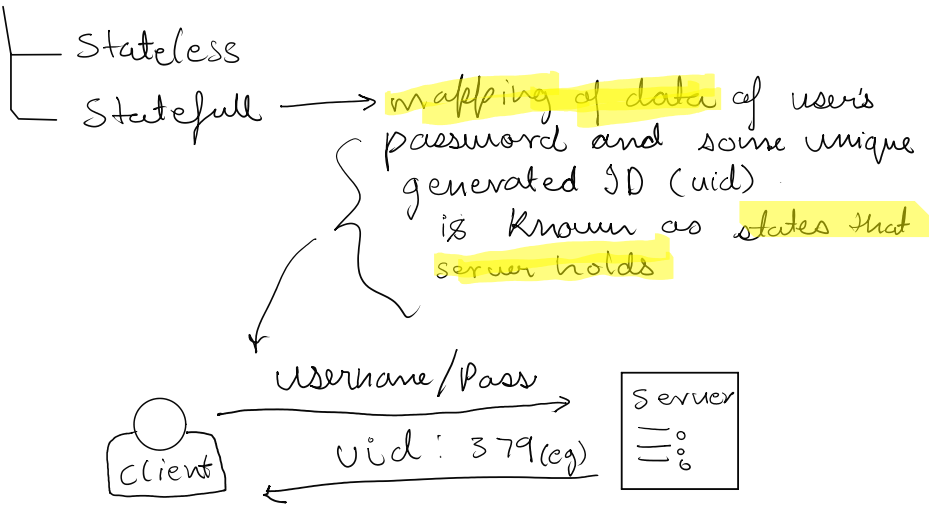 Stateless
Statefull
mapping of data of user's
password and some unique
generated ID (uid)
is known as states that
server holds
Username/Pass
server
uid: 379(eg)
client